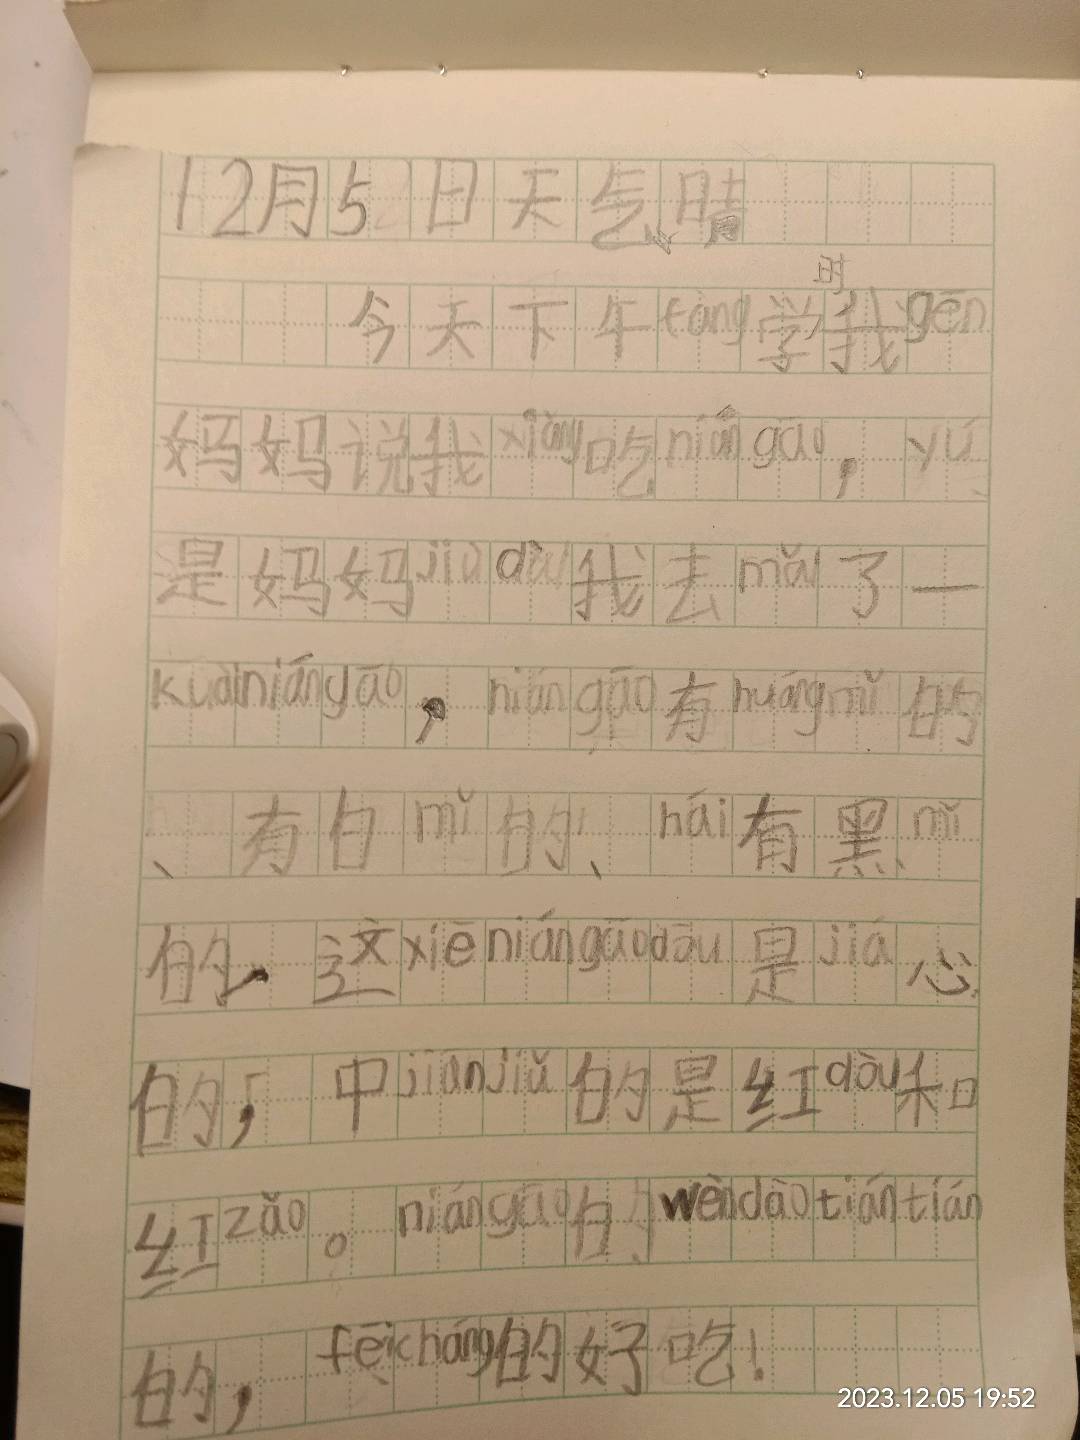 12月5日天气晴
时
今天下午fàng学我gēn
妈妈说我xiǎng吃niángāo，yú
是妈妈jiùdài我去mǎi了一
kuàiniángāo，niángāo有huángmǐ的
、有白mǐ的、hái有黑mǐ
的.这xiēniángāodōu是jiá心
的，中jiānjiǔ的是红dòu和
红zǎo。niángāo的wèndàotiántián
的，fēicháng的好吃！
2023.12.05 19:52